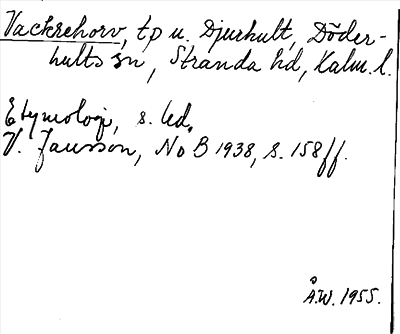 Vackrehorv, tp u. Djurhult, Döder-
hults sn, Stranda hd, Kalm. l.
Etymologi, s. led.
V. Jansson, NoB 1938, s. 158ff.
Å.W. 1955.